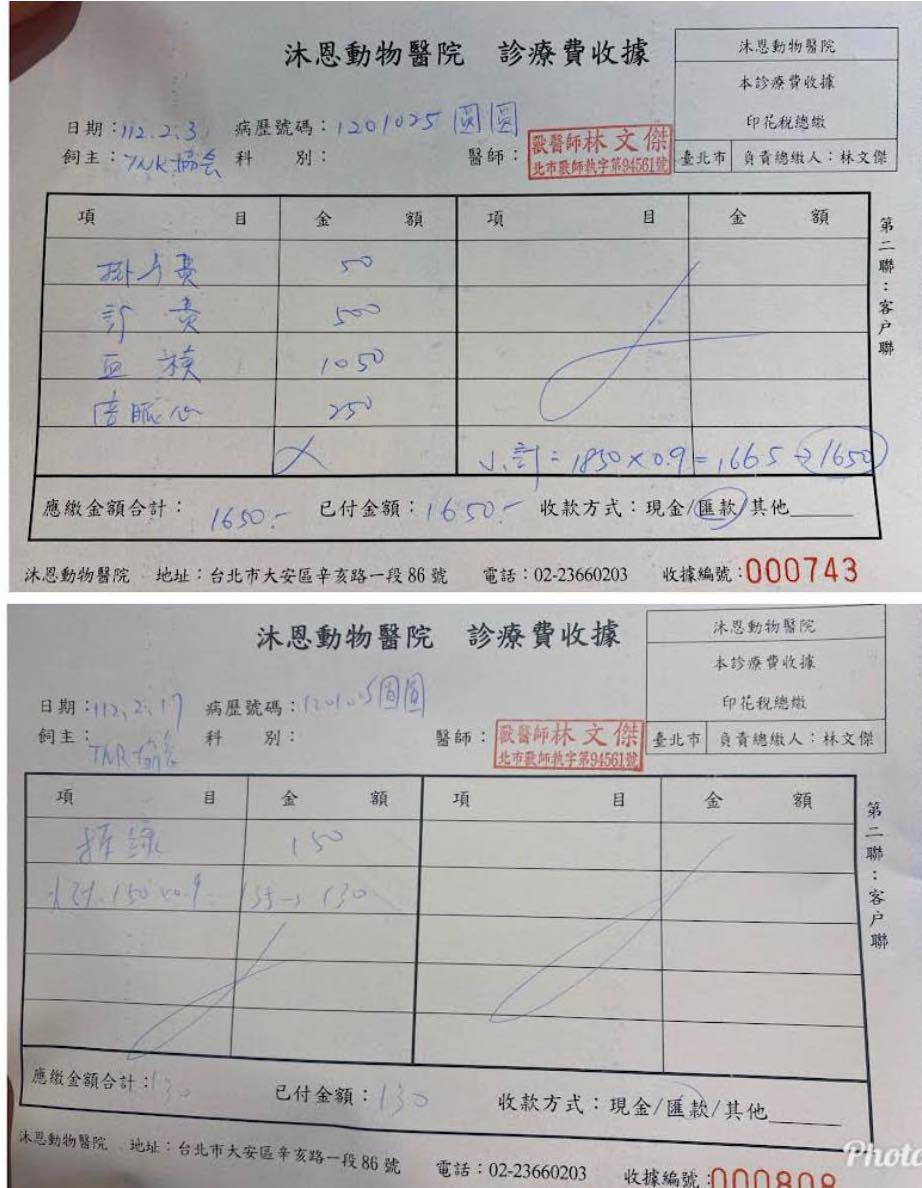 沐恩動物醫院 診療費收據
沐恩動物醫院
本診療費收據
印花稅總繳
臺北市 負責總繳人：林文傑
日期：112.2.3 病歷號碼：1201025 圓圓
飼主：TNR協会 科 別： 醫師：
獸醫師林文傑
北市獸師執字第94561號
項 目 金 額 項 目 金 額
掛号費 50
診費 500
血檢 1050
250
小計=1850×0.9=1665→1650
應繳金額合計：1650.- 已付金額：1650.- 收款方式：現金/匯款/其他
第二聯：客户聯
沐恩動物醫院 地址：台北市大安區辛亥路一段86號 電話：02-23660203 收據編號：000743
沐恩動物醫院 診療費收據
沐恩動物醫院
本診療費收據
印花稅總繳
臺北市 負責總繳人：林文傑
日期：112.2.17 病歷號碼： 圓圓
飼主：TNR協会 科 別： 醫師：
獸醫師林文傑
北市獸師執字第94561號
項 目 金 額 項 目 金 額
150
小計.150×0.9 135→130
應繳金額合計：130 已付金額：130 收款方式：現金/匯款/其他
第二聯：客户聯
沐恩動物醫院 地址：台北市大安區辛亥路一段86號 電話：02-23660203 收據編號：000808
Photo